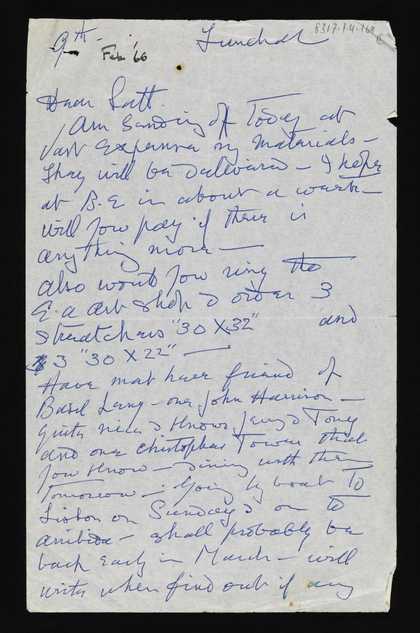 9th Funchal 8317.1.4.
Feb '66
Dear Lett.
Am Sending off Today at
Vast Expense my materials –
They will be delivered – I hope
at B.E in about a week –
will you pay if there is
anything more –
also would you ring the
E.a art shop & order 3
Stretchers "30 X 32" and
3 "30 X 22" –
Have met here friend of
Basil Lang – one John Harrison –
quite nice & knows Jenny & Tony
and one Christopher Tower that
you know – dining with them
Tomorrow – Going by boat To
Lisbon on Sunday & on To
– shall probably be
back Early in March – will
write when find out if any